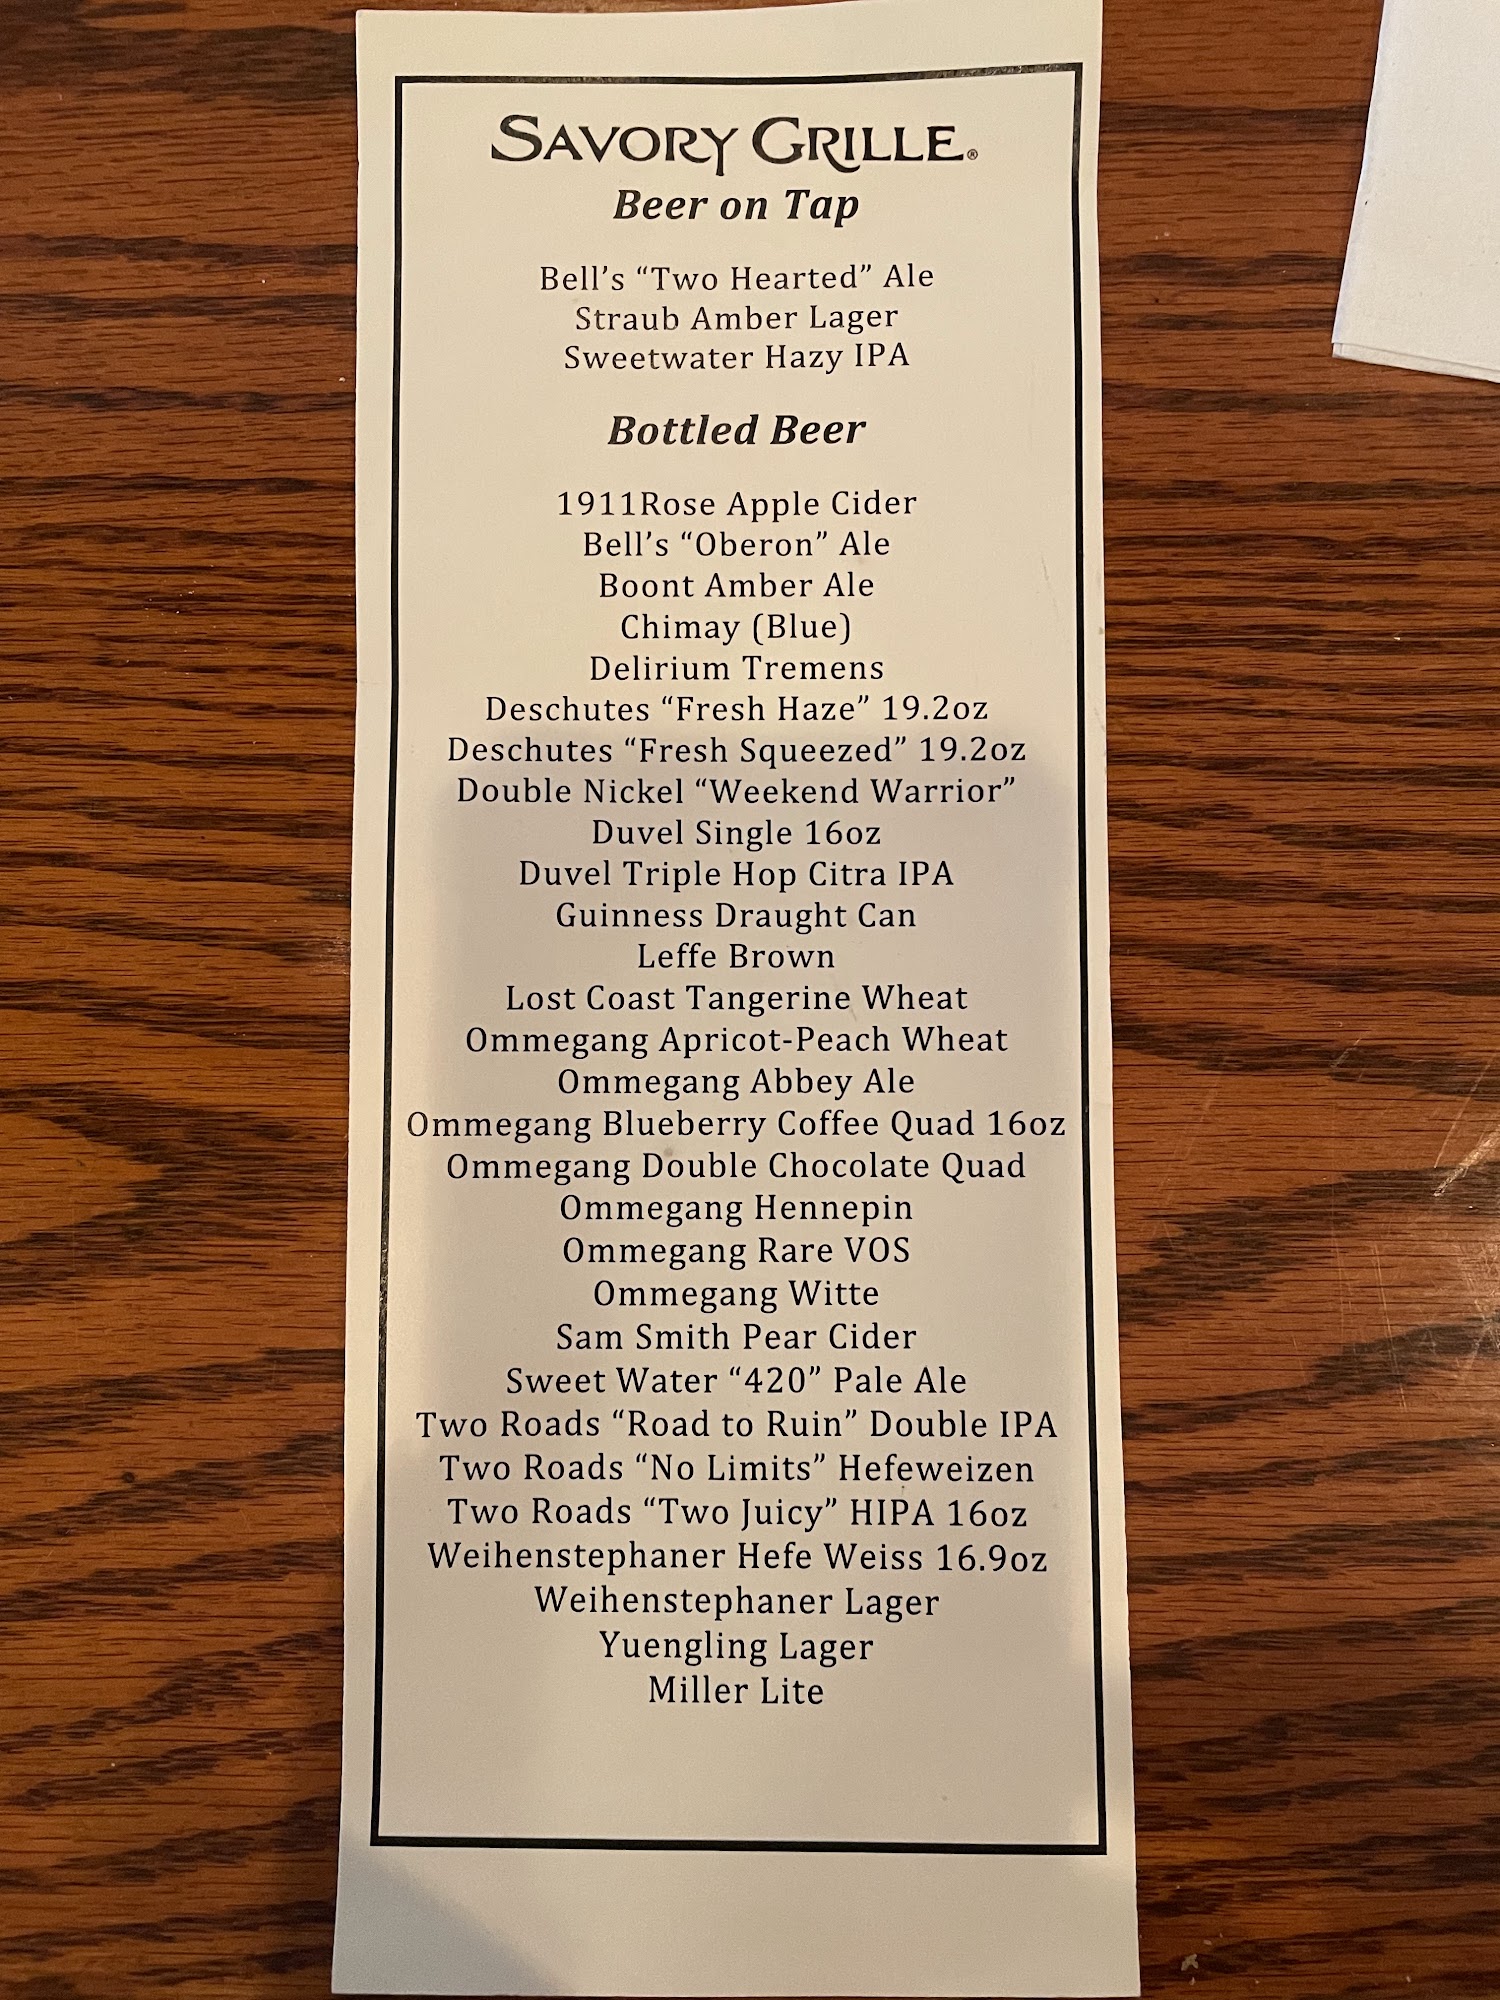 SAVORY GRILLE®
Beer on Tap
Bell's “Two Hearted” Ale
Straub Amber Lager
Sweetwater Hazy IPA
Bottled Beer
1911Rose Apple Cider
Bell's “Oberon” Ale
Boont Amber Ale
Chimay (Blue)
Delirium Tremens
Deschutes “Fresh Haze” 19.2oz
Deschutes “Fresh Squeezed” 19.2oz
Double Nickel “Weekend Warrior”
Duvel Single 16oz
Duvel Triple Hop Citra IPA
Guinness Draught Can
Leffe Brown
Lost Coast Tangerine Wheat
Ommegang Apricot-Peach Wheat
Ommegang Abbey Ale
Ommegang Blueberry Coffee Quad 16oz
Ommegang Double Chocolate Quad
Ommegang Hennepin
Ommegang Rare VOS
Ommegang Witte
Sam Smith Pear Cider
Sweet Water “420” Pale Ale
Two Roads “Road to Ruin” Double IPA
Two Roads “No Limits” Hefeweizen
Two Roads “Two Juicy” HIPA 16oz
Weihenstephaner Hefe Weiss 16.9oz
Weihenstephaner Lager
Yuengling Lager
Miller Lite